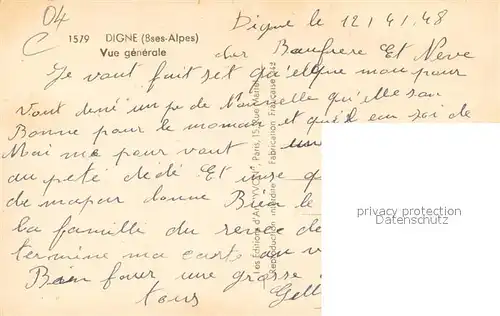 04
C
1579 DIGNE (Bses-Alpes)
Vue générale
Digne le 12/4/48
cher Beaufrere Et Neve
Je vout fait set qu'elque mou pour
Vout dené un pe de Nouvelle qu'elle son
Bonne pour le moman et qu'il en soi de
Mai me pour vout
au peté dédé Et
du mapar donne Bien le
la famille du
termine ma carto au
Bien fouer une grosse
tous
Les Editions d'Art "YVON", Paris, 15, Rue Martel
Reproduction interdite Fabrication Française
privacy protection
Datenschutz